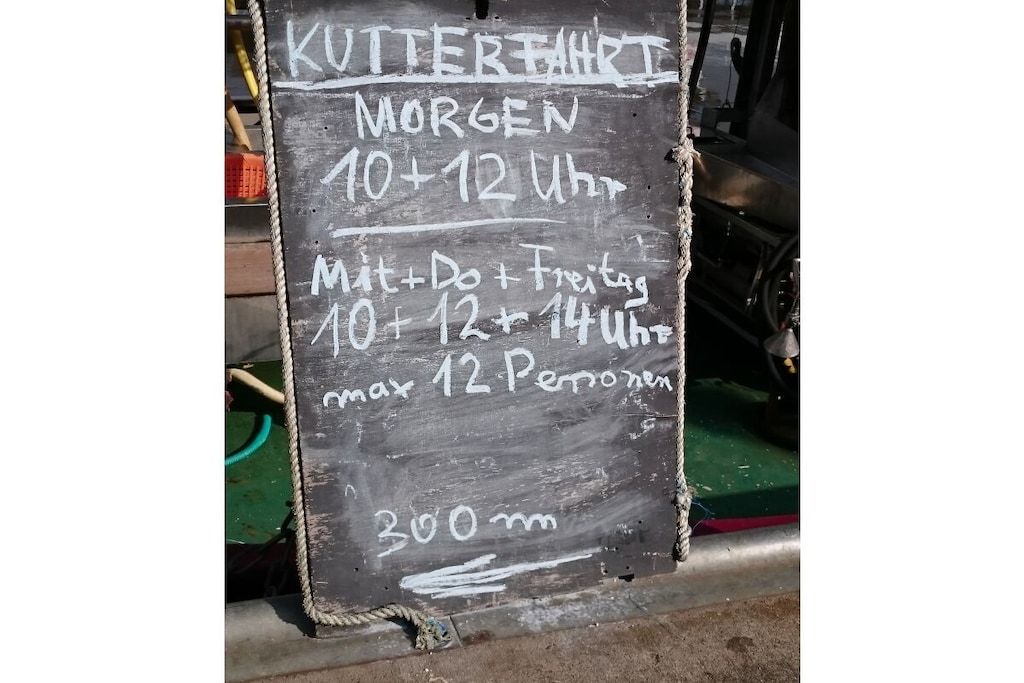 KUTTERFAHRT
MORGEN
10 + 12 Uhr
Mit + Do + Freitag
10 + 12 + 14 Uhr
max 12 Personen
300 m